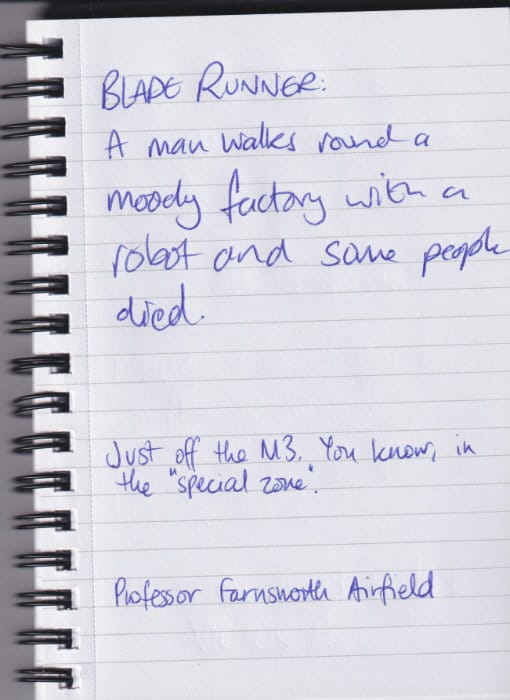 BLADE RUNNER:
A man walks round a
moody factory with a
robot and some people
died.
Just off the M3. You know, in
the "special zone".
Professor Farnsworth Airfield